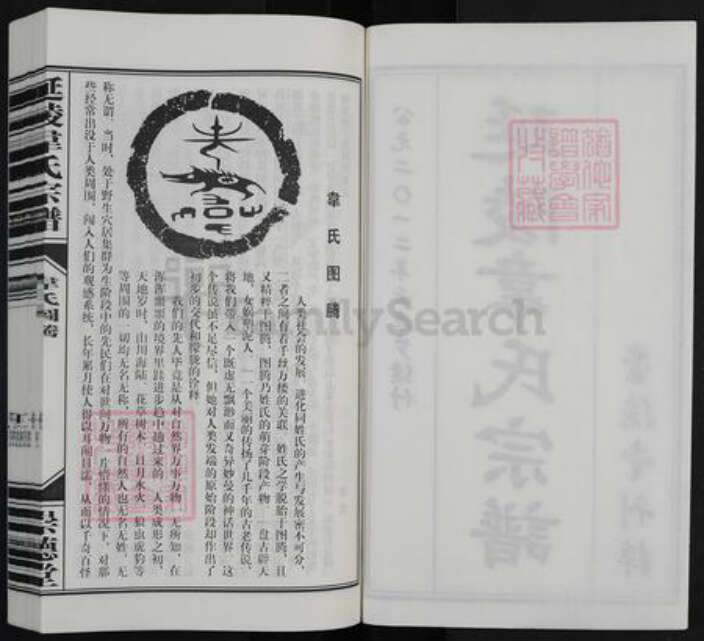 韋氏图腾
人类社会的发展、进化同姓氏的产生与发展密不可分，
二者之间有着千丝万缕的关联。姓氏之学脱胎于图腾，且
又精粹于图腾，图腾乃姓氏的萌芽阶段产物。盘古辟天
地，女娲塑泥人，一个个美丽的传扬了几千年的古老传说，
将我们带入一个既虚无飘渺而又奇异妙曼的神话世界。这
个传说虽不足尽信，但她对人类发端的原始阶段却作出了
初步的交代和朦胧的诠释。
我们的先人毕竟是从对自然界万事万物一无所知，在
浑浑噩噩的境界里跬进步趋中趟过来的。人类成形之初，
天地岁时、山川海陆、花草树木、日月水火、狼虫虎豹等
等周围的一切均无名无称，所有的自然人也无名无姓，无
称无谓。当时，处于野生穴居集群为生阶段中的先民们在对世间万物一片懵懂的情况下，对那
些经常出没于人类周围、闯入人们的观感系统，长年累月使人得以耳闻目濡，从而以千奇百怪
延陵韋氏宗譜
韋氏图腾
景德堂
延陵韋氏宗譜
公元二〇一二年
FamilySearch